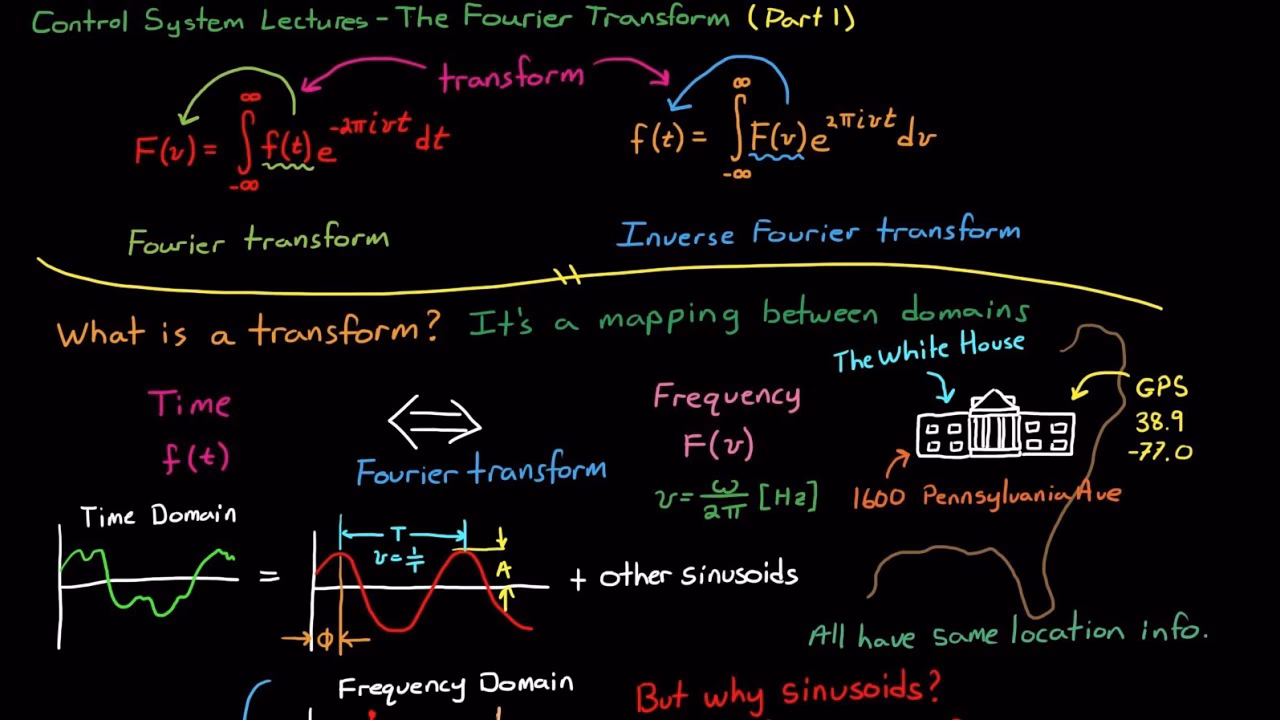 Control System Lectures - The Fourier Transform (Part 1)
transform
F(v) = ∫_{-∞}^{∞} f(t) e^{-2πivt} dt
f(t) = ∫_{-∞}^{∞} F(v) e^{2πivt} dv
Fourier transform
Inverse Fourier transform
What is a transform? It's a mapping between domains
The White House
GPS
38.9
-77.0
1600 Pennsylvania Ave
Time
f(t)
Fourier transform
Frequency
F(v)
v = ω/2π [Hz]
Time Domain
=
T
v = 1/T
A
Φ
+ other sinusoids
All have same location info.
Frequency Domain
But why sinusoids?